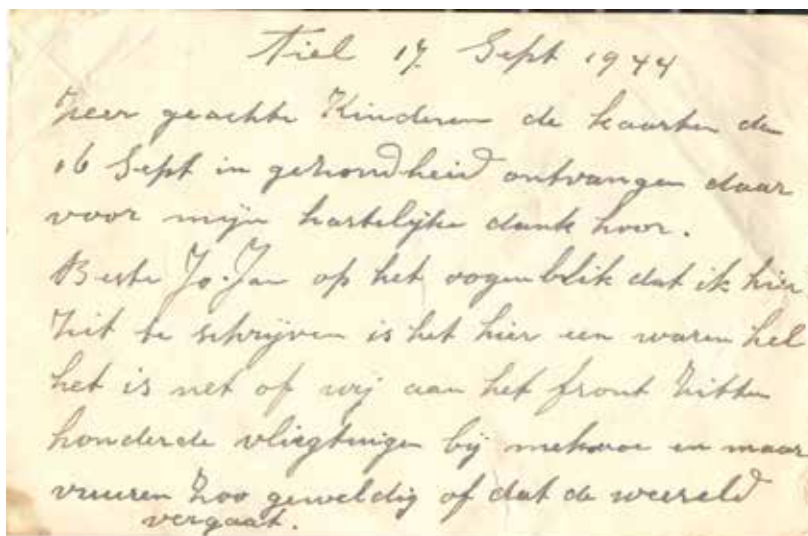 Tiel 17 Sept 1944
Zeer geachte Kinderen de kaarten den
16 Sept in gezondheid ontvangen daar
voor mijn hartelijke dank hoor.
Beste Jo. Jan op het oogenblik dat ik hier
zit te schrijven is het hier een waren hel
het is net of wij aan het front zitten
honderde vliegtuigen bij en maar
vuuren zoo geweldig of dat de weereld
vergaat.